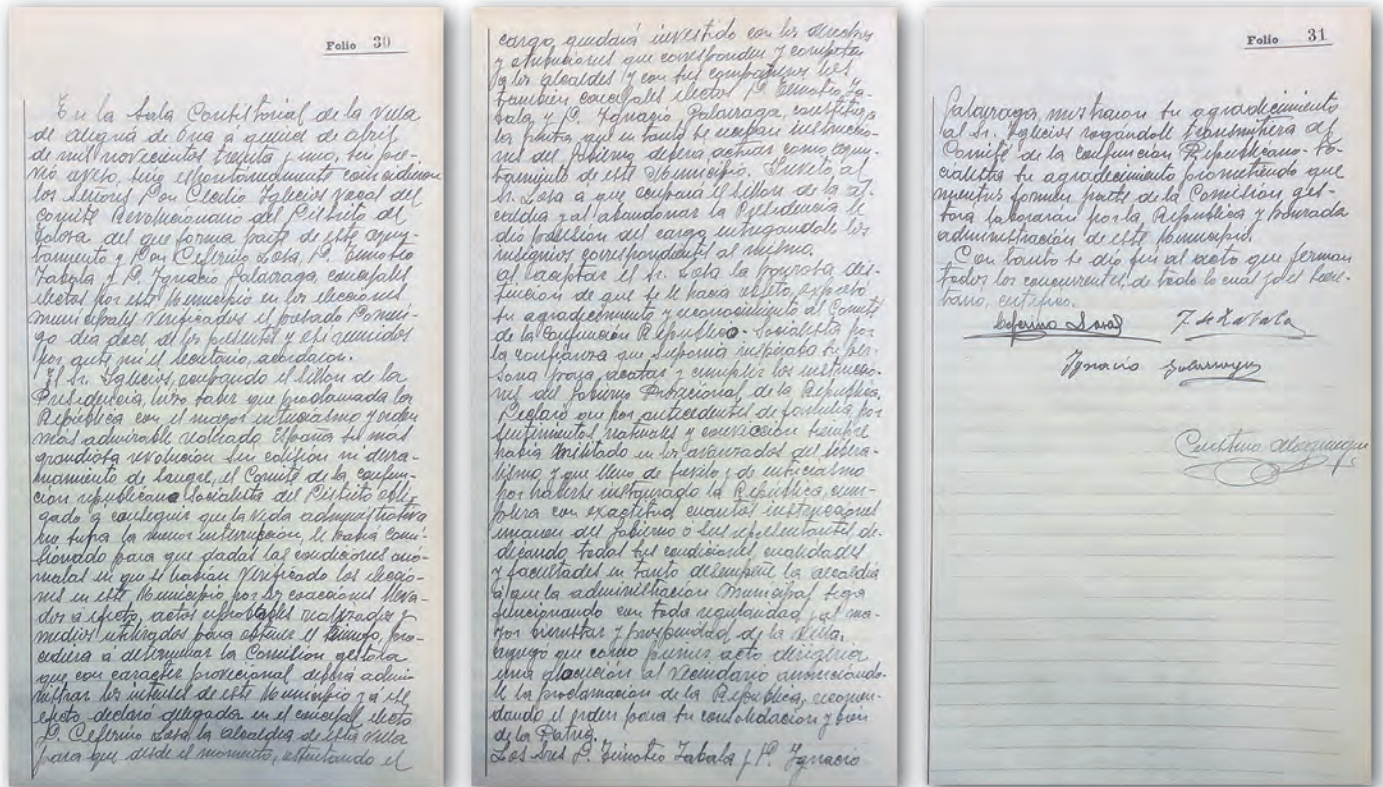 Folio 30
En la Sala Consistorial de la Villa
de Alegria de Oria á quince de abril
de mil novecientos treinta y uno, sin pre-
vio aviso, sino espontaneamente coincidieron
los señores Don Cecilio Iglecias vocal del
Comité Revolucionario del Distrito de
Tolosa del que forma parte de este ayun-
tamiento y Don Ceferino Sosa, D. Timoteo
Zabala y D. Ignacio Galarraga, concejales
electos por este Municipio en las elecciones
municipales verificadas el pasado Domin-
go dia doce de los presentes y asi reunidos
por ante mi el secretario, acordaron.
El Sr. Iglecias, ocupando el sillon de la
Presidencia, hizo saber que proclamada la
República con el mayor entusiasmo y orden
más admirable realizado España su mas
grandiosa revolucion sin colision ni derra-
mamiento de sangre, el Comité de la conjun-
cion republicana Socialista del Distrito obli-
gado a conseguir que la vida administrativa
no sufra la menor interrupcion, le habia comi-
sionado para que dadas las condiciones anó-
malas en que se habian verificado las eleccio-
nes en este Municipio por las coacciones lleva-
das a efecto, actos reprobables realizados y
medios utilizados para obtener el triunfo, pro-
cediera á determinar la Comision gestora
que con carácter provicional debera admi-
nistrar los intereses de este Municipio y á ese
efecto declaró delegada en el concejal electo
D. Ceferino Sosa la alcaldia de esta villa
para que desde el momento, ostentando el
cargo quedará investido con los derechos
y atribuciones que corresponden y competen
a los alcaldes y con sus compañeros los
también concejales electos D. Timoteo Za-
bala y D. Ignacio Galarraga, constituya
la Junta que en tanto se reciban instruccio-
nes del Gobierno debera actuar como ayun-
tamiento de este Municipio. Invitó al
Sr. Sosa a que ocupara el sillon de la al-
caldia y al abandonar la Presidencia le
dió posesion del cargo entregandole las
insignias correspondientes al mismo.
Al aceptar el Sr. Sosa la honrosa dis-
tincion de que se le hacia objeto, expresó
su agradecimiento y reconocimiento al Comité
de la Conjuncion República-Socialista por
la confianza que suponia inspiraba su per-
sona para acatar y cumplir las instruccio-
nes del Gobierno Provicional de la República.
Declaró que por antecedentes de familia por
sentimientos naturales y conviccion siempre
habia militado en los avanzados del libera-
lismo y que lleno de jubilo y de entuciasmo
por haberse instaurado la República, cum-
plira con exactitud cuantas instrucciones
emanen del Gobierno ó sus representantes de-
dicando todas sus condiciones cualidades
y facultades en tanto desempeñe la alcaldia
á que la administracion municipal siga
funcionando con toda regularidad y al ma-
yor bienestar y prosperidad de la Villa.
Agregó que como primer acto dirigiria
una alocución al vecindario anunciando-
le la proclamacion de la República, recomen-
dando el orden para su consolidacion y bien
de la Patria.
Los Sres D. Timoteo Zabala y D. Ignacio
Folio 31
Galarraga, mostraron su agradecimiento
al Sr. Iglecias rogandole transmitiera al
Comité de la conjuncion Republicano-So-
cialista su agradecimiento prometiendo que
mientras formen parte de la Comision ges-
tora laboraran por la República y honrada
administracion de este Municipio.
Con tanto se dio fin al acto que firman
todos los concurrentes, de todo lo cual yo el Secre-
tario, certifico.
Ceferino Sosa T. de Zabala
Ignacio Galarraga